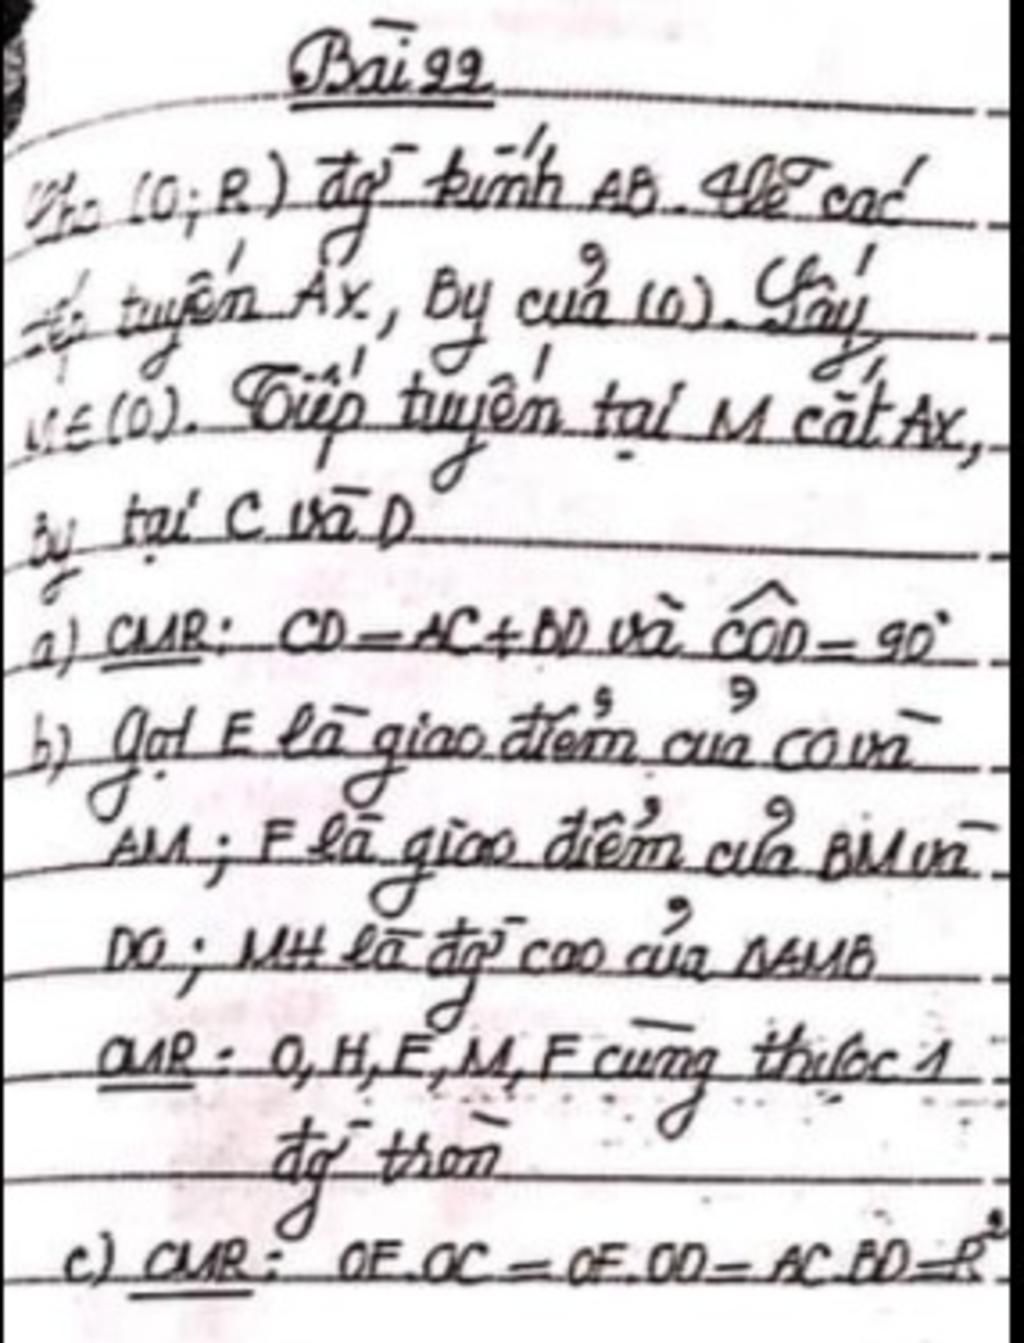 Bài 22
Cho (O; R) đg̀ kính AB. Vẽ các
tiếp tuyến Ax, By của (O). Lấy
M ∈ (O). Tiếp tuyến tại M cắt Ax,
By tại C và D
a) CMR: CD = AC + BD và CÔD = 90°
b) gọi E là giao điểm của CO và
AM; F là giao điểm của BM và
DO; MH là đg̀ cao của ΔAMB
CMR: O, H, E, M, F cùng thuộc 1
đg̀ tròn
c) CMR: OE.OC = OF.OD = AC.BD = R²